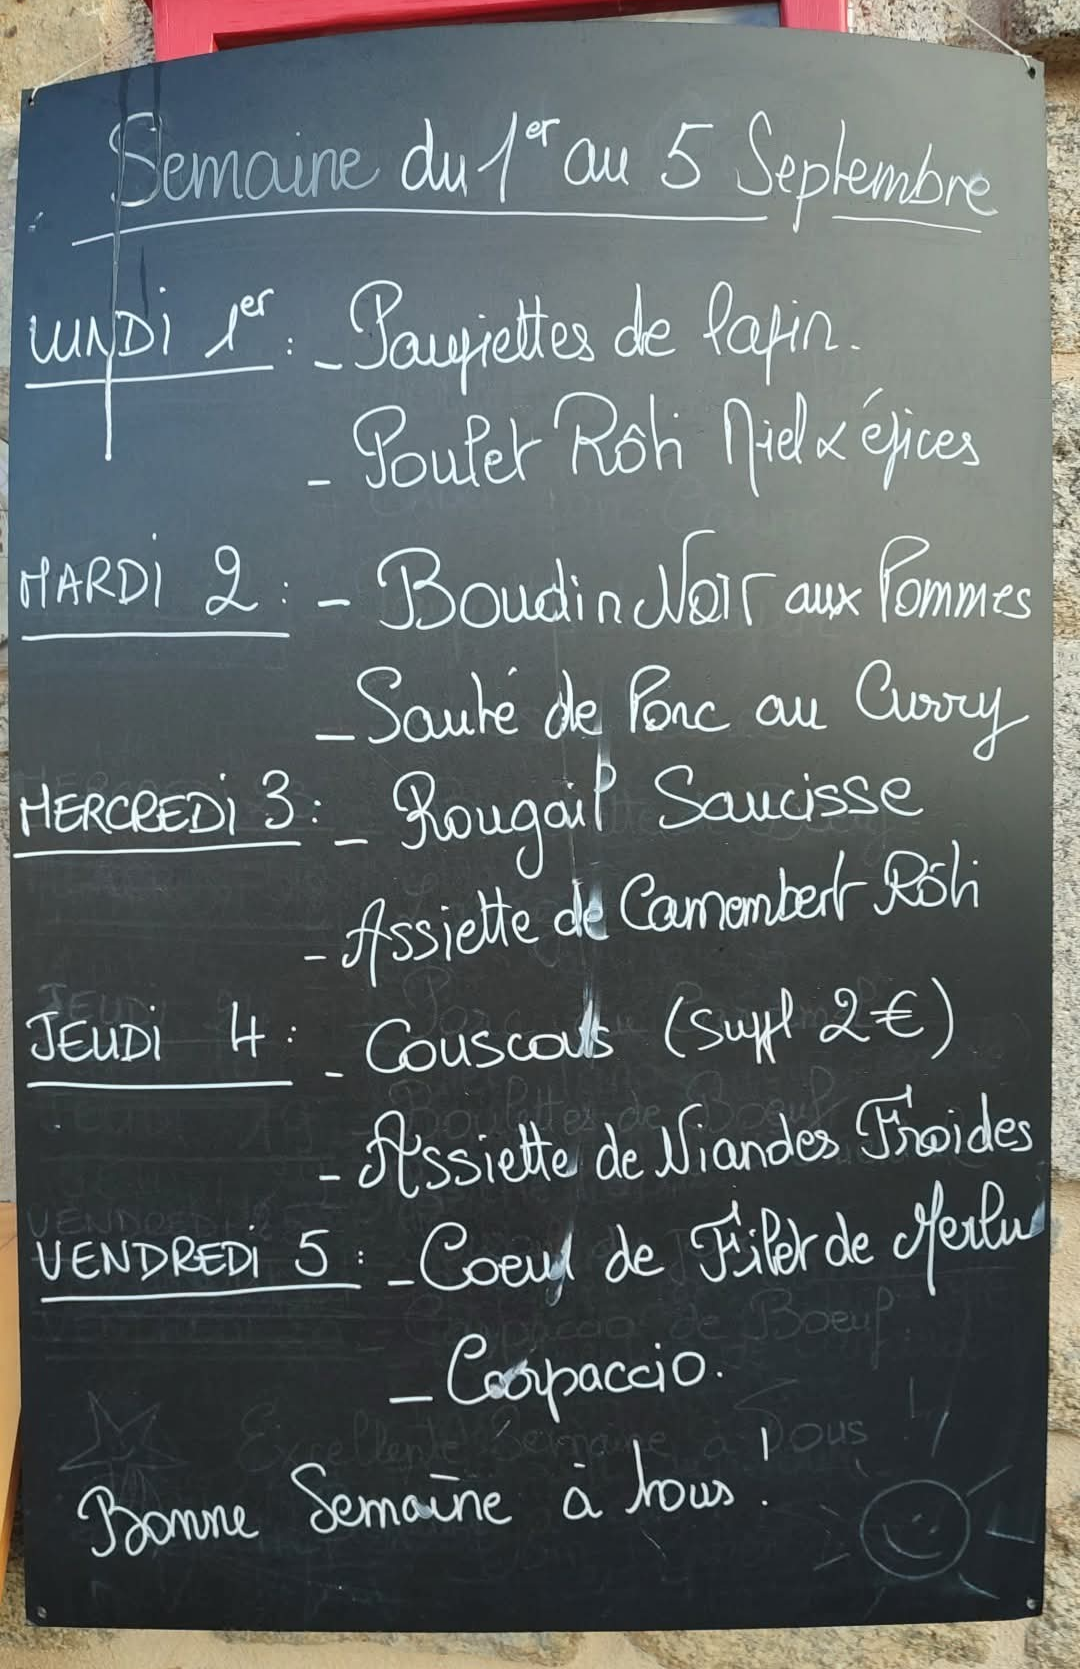 Semaine du 1er au 5 Septembre
LUNDI 1er : - Paupiettes de lapin.
- Poulet Rôti Miel & épices
MARDI 2 : - Boudin Noir aux Pommes
- Sauté de Porc au Curry
MERCREDI 3 : - Rougail Saucisse
- Assiette de Camembert Rôti
JEUDI 4 : - Couscous (suppl 2€)
- Assiette de Viandes Froides
VENDREDI 5 : - Coeur de Filet de Merlu
- Carpaccio.
Bonne Semaine à tous !